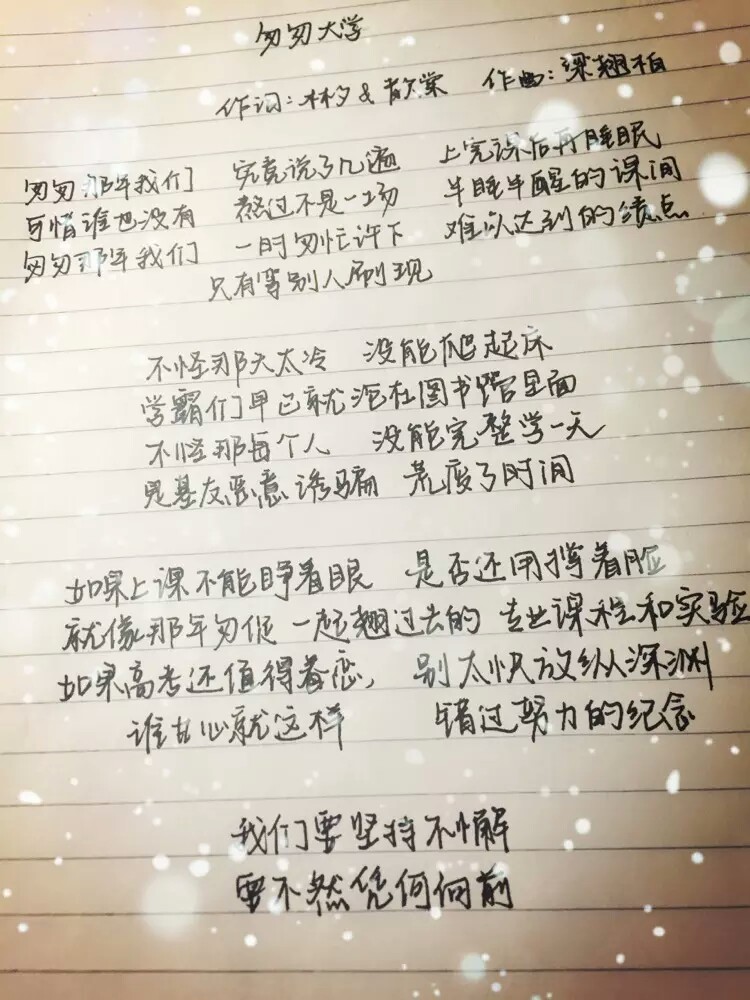 匆匆大学
作词:林夕&散棠 作曲:梁翘柏
匆匆那年我们 究竟说了几遍 上完课后再睡眠
可惜谁也没有 熬过不是一场 半睡半醒的课间
匆匆那年我们 一时匆忙许下 难以达到的绩点
只有等别人刷现
不怪那天太冷 没能爬起床
学霸们早已就泡在图书馆里面
不怪那每个人 没能完整学一天
是基友恶意诱骗 荒废了时间
如果上课不能睁着眼 是否还用撑着脸
就像那年匆促 一起翘过去的 专业课程和实验
如果高考还值得眷恋, 别太快放纵深渊
谁甘心就这样 错过努力的纪念
我们要坚持不懈
要不然凭何向前